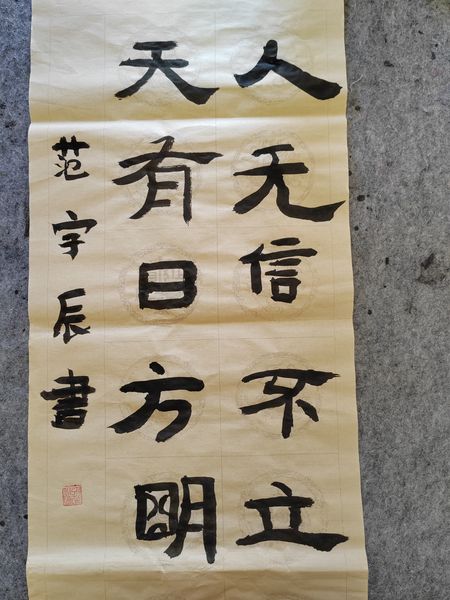 人无信不立
天有日方明
范宇辰書